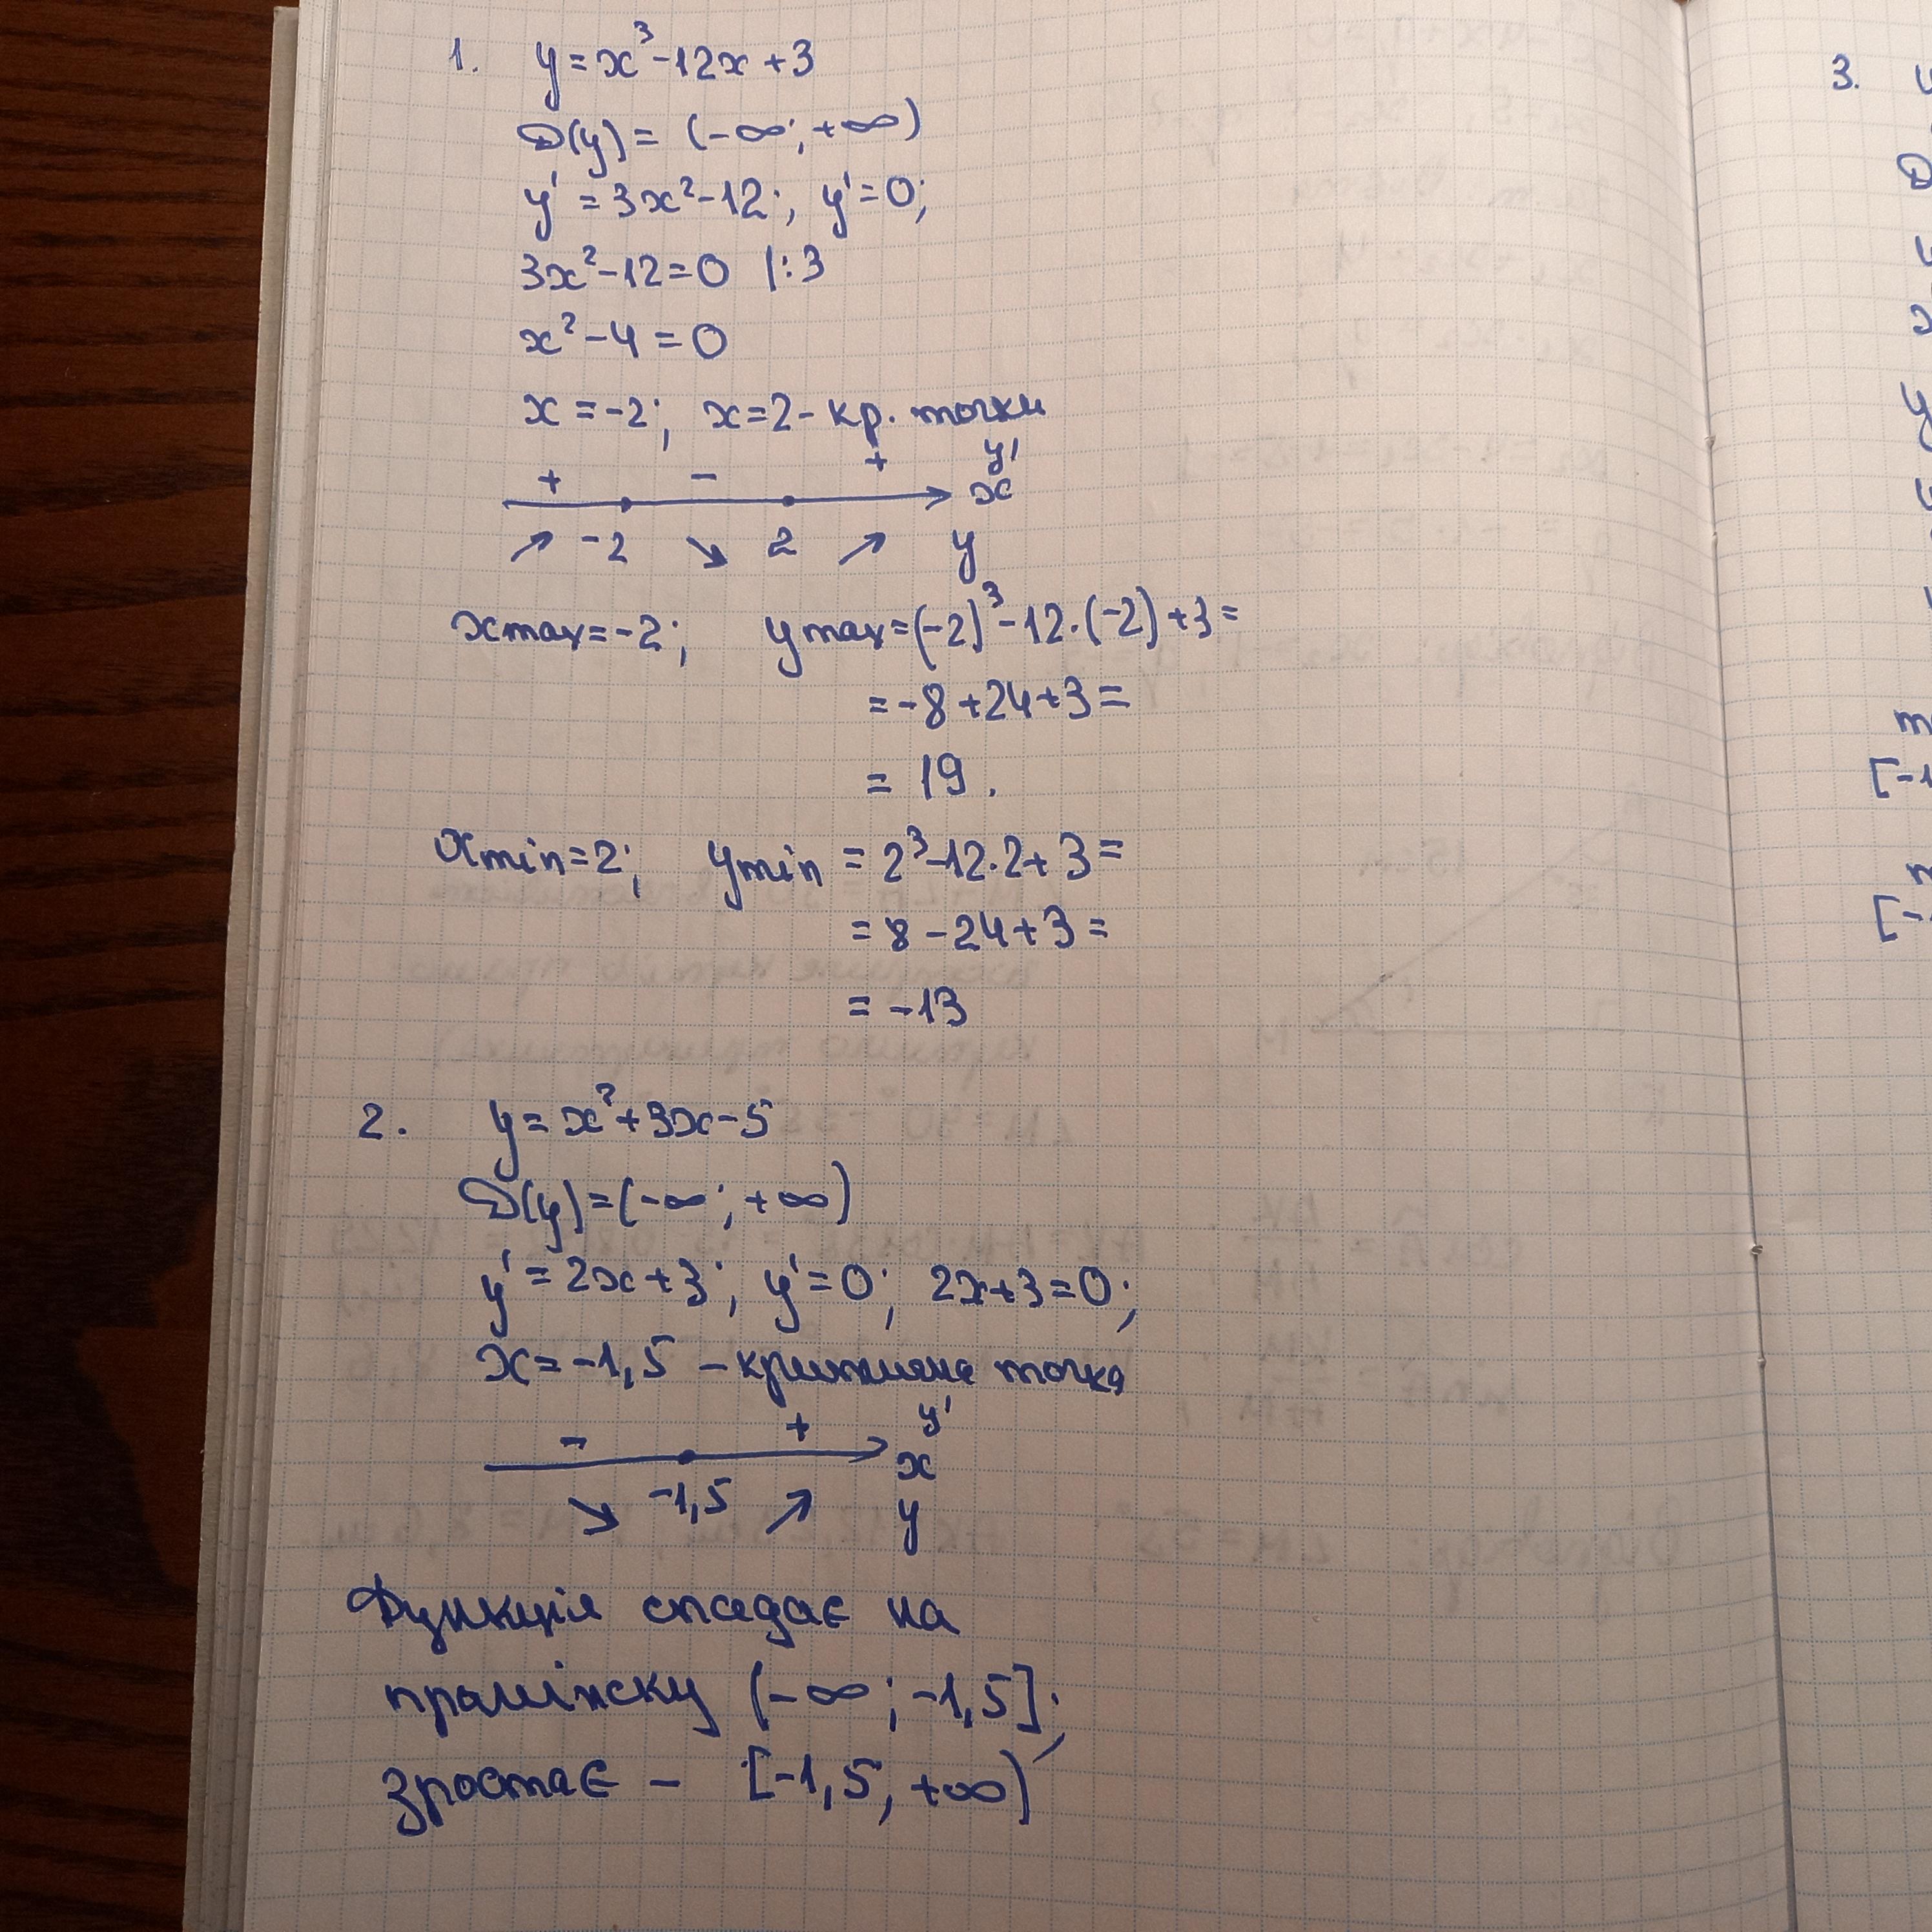 1. y = x³ - 12x + 3
D(y) = (-∞; +∞)
y' = 3x² - 12; y' = 0;
3x² - 12 = 0 |:3
x² - 4 = 0
x = -2; x = 2 - кр. точки
+ - + y'
x
↗ -2 ↘ 2 ↗ y
xmax = -2; ymax = (-2)³ - 12·(-2) + 3 =
= -8 + 24 + 3 =
= 19.
xmin = 2; ymin = 2³ - 12·2 + 3 =
= 8 - 24 + 3 =
= -13
2. y = x² + 3x - 5
D(y) = (-∞; +∞)
y' = 2x + 3; y' = 0; 2x + 3 = 0;
x = -1,5 - критична точка
- + y'
x
↘ -1,5 ↗ y
Функція спадає на
проміжку (-∞; -1,5];
зростає - [-1,5; +∞)
3.
[-1